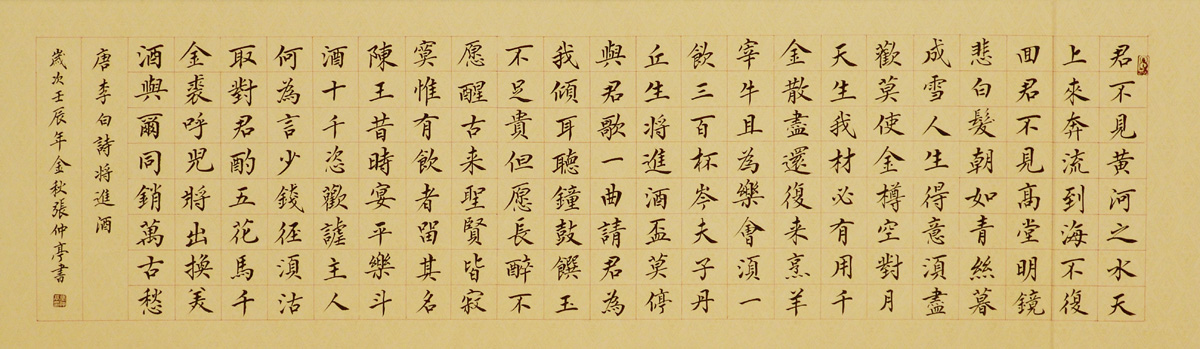 君不見黄河之水天
上來奔流到海不復
回君不見高堂明鏡
悲白髮朝如青絲暮
成雪人生得意須盡
歡莫使金樽空對月
天生我材必有用千
金散盡還復来烹羊
宰牛且為樂會須一
飲三百杯岑夫子丹
丘生将進酒盃莫停
與君歌一曲請君為
我傾耳聽鐘鼓饌玉
不足貴但愿長醉不
愿醒古来聖賢皆寂
寞惟有飲者留其名
陳王昔時宴平樂斗
酒十千恣歡謔主人
何為言少錢径須沽
取對君酌五花馬千
金裘呼兒將出換美
酒與爾同銷萬古愁
唐李白詩将進酒
歲次壬辰年金秋張仲亭書